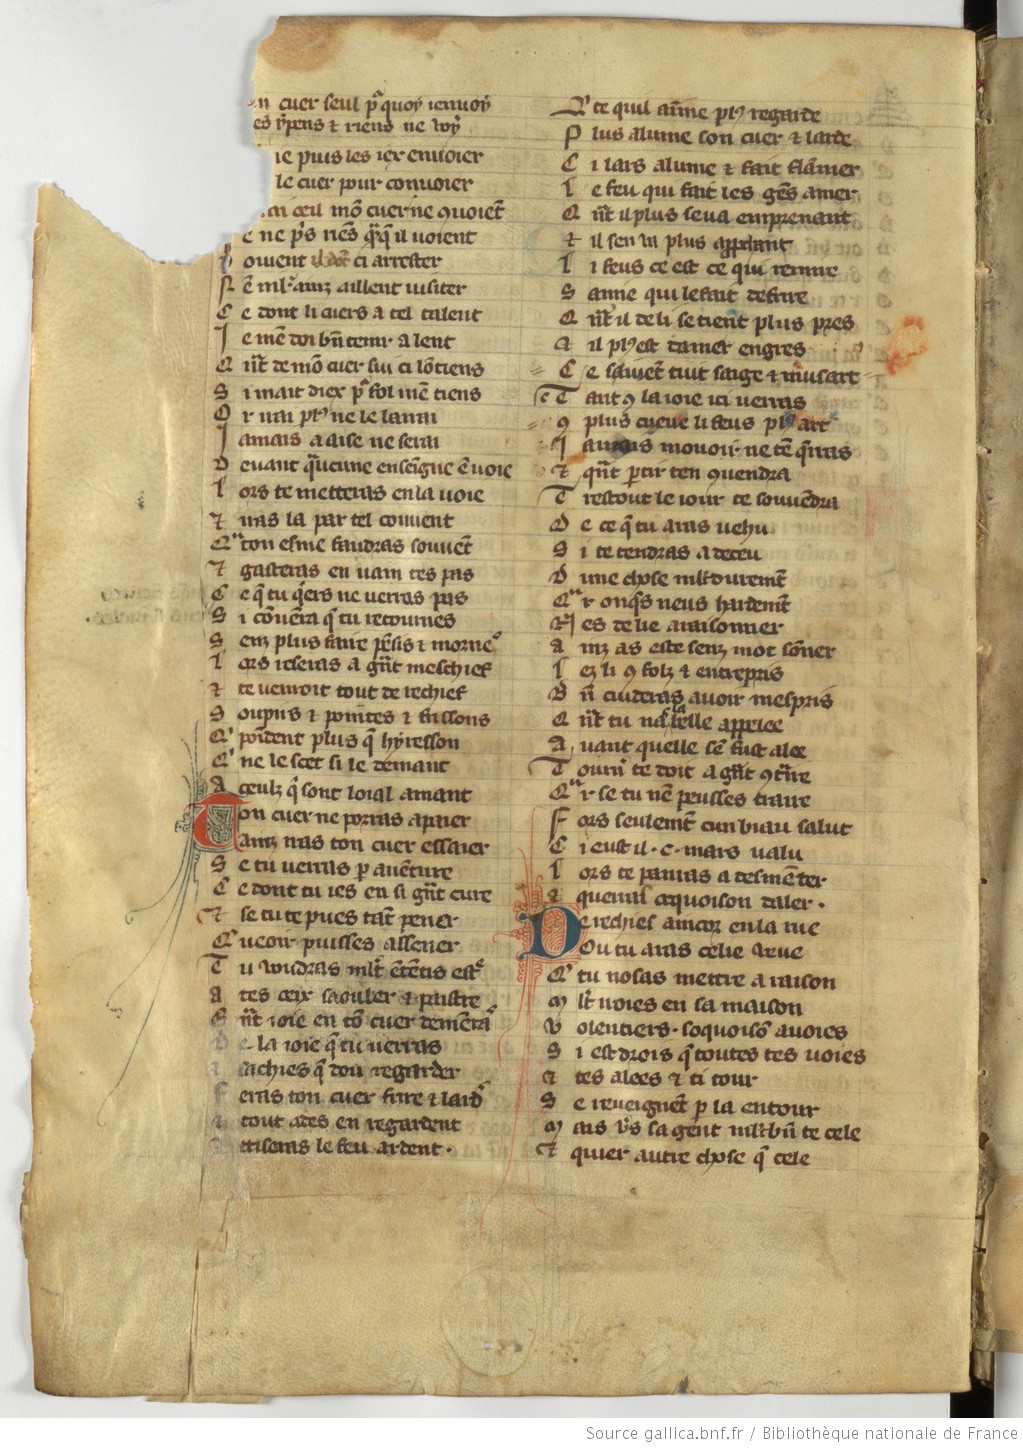 n cuer seul pͬ quoy ienuoy
es ypens ⁊ riens ne uoy
ie puis les iex enuoier
le cuer pour conuoier
mi oeil mō cuer ne ꝯuoiēt
e ne p̄s riēs q̄ q̄ il uoient
oiuent ci arrester
ē mlˀ ainz aillent uisiter
C e dont li cuers a tel talent
I e mē doi bn̄ tenir a lent
Q n̄t de mō cuer sui ci lōtiens
S i mait diex pͬ fol mē tiens
O r irai plˀ ne le lairai
I amais a aise ne serai
D euant q̄ aucune enseigne ē uoie
L ors te metteras en la uoie
⁊ iras la par tel couuent
Qͣ ton esme faudras souuēt
⁊ gasteras en uain tes pas
C e q̄ tu q̄ers ne uerras pas
S i cōuēra q̄ tu retournes
S enz plus faire pēsis ⁊ mornes
L ors reseras a gn̄t meschief
⁊ te uenront tout de rechief
S oupirs ⁊ pointes ⁊ frissons
Qͥ poīdent plus q̄ hyresson
Qͥ ne le scet si le demant
A ceulz q̄ sont loial amant
Ton cuer ne porras apaier
Ainz iras ton cuer essaier
S e tu uerras ꝑ auēture
C e dont tu ies en si gn̄t cure
⁊ se tu te pues tāt pener
Qͣ ueoir puisses assener
T u uoudras ml̄t ētētis estͤ
A tes oeix saouler ⁊ paistre
G n̄t ioie en tō cuer demērͣ
D e la ioie q̄ tu uerras
sachies q̄ dou regarder
F eras ton cuer frire ⁊ lardͬ
⁊ tout ades en regardent
ttiseras le feu ardent .
Qͥ ce quil aīme plˀ regarde
P lus alume son cuer ⁊ larde
C i lars alume ⁊ fait flāmer
L e feu qui fait les gēs amer
Q n̄t il plus seua emprenant
⁊ il sen ua plus aprenant
L i feus ce est ce qui remire
S amie qui le fait defrire
Q n̄t il de li se tient plus pres
⁊ il plˀ est damer engres
C e sauēt tuit saige ⁊ musart
T ant ꝯ la ioie ici uerras
ꝯ plus cueure li feus plˀ art
I amais mouoir ne tē q̄rras
⁊ qn̄t partir ten ꝯuendra
T restout le iour te souuēdra
D e ce q̄ tu aras uehu
S i te tendras a deceu
D une chose ml̄t durement
Qͣ r onq̄s neus hardemēt
N es de lie araisonner
A inz as este senz mot sōner
L ez li ꝯ folz ⁊ entrepris
B n̄ cuideras auoir mespris
Q n̄t tu nas la belle appelee
A uant quelle sē fust alee
T ourn̄ te doit a gn̄t ꝯtͬire
Qͣ r se tu nē peusses traire
F ors seulemēt cun biau salut
C i eust il . c . mars ualu
L ors te panras a desmēter
⁊ querras oquoison daler .
De rechief aincor en la rue
Ou tu aras celie ueue
Qͥ tu nosas mettre a raison
M l̄t uoies en sa maison
V olentiers . soquoisō auoies
S i est drois q̄ toutes tes uoies
⁊ tes alees ⁊ ti tour
S e reueignēt ꝑ la entour
M ais ūs sa gent ml̄t bn̄ te cele
⁊ quier autre chose q̄ cele
Source gallica.bnf.fr / Bibliothèque nationale de France